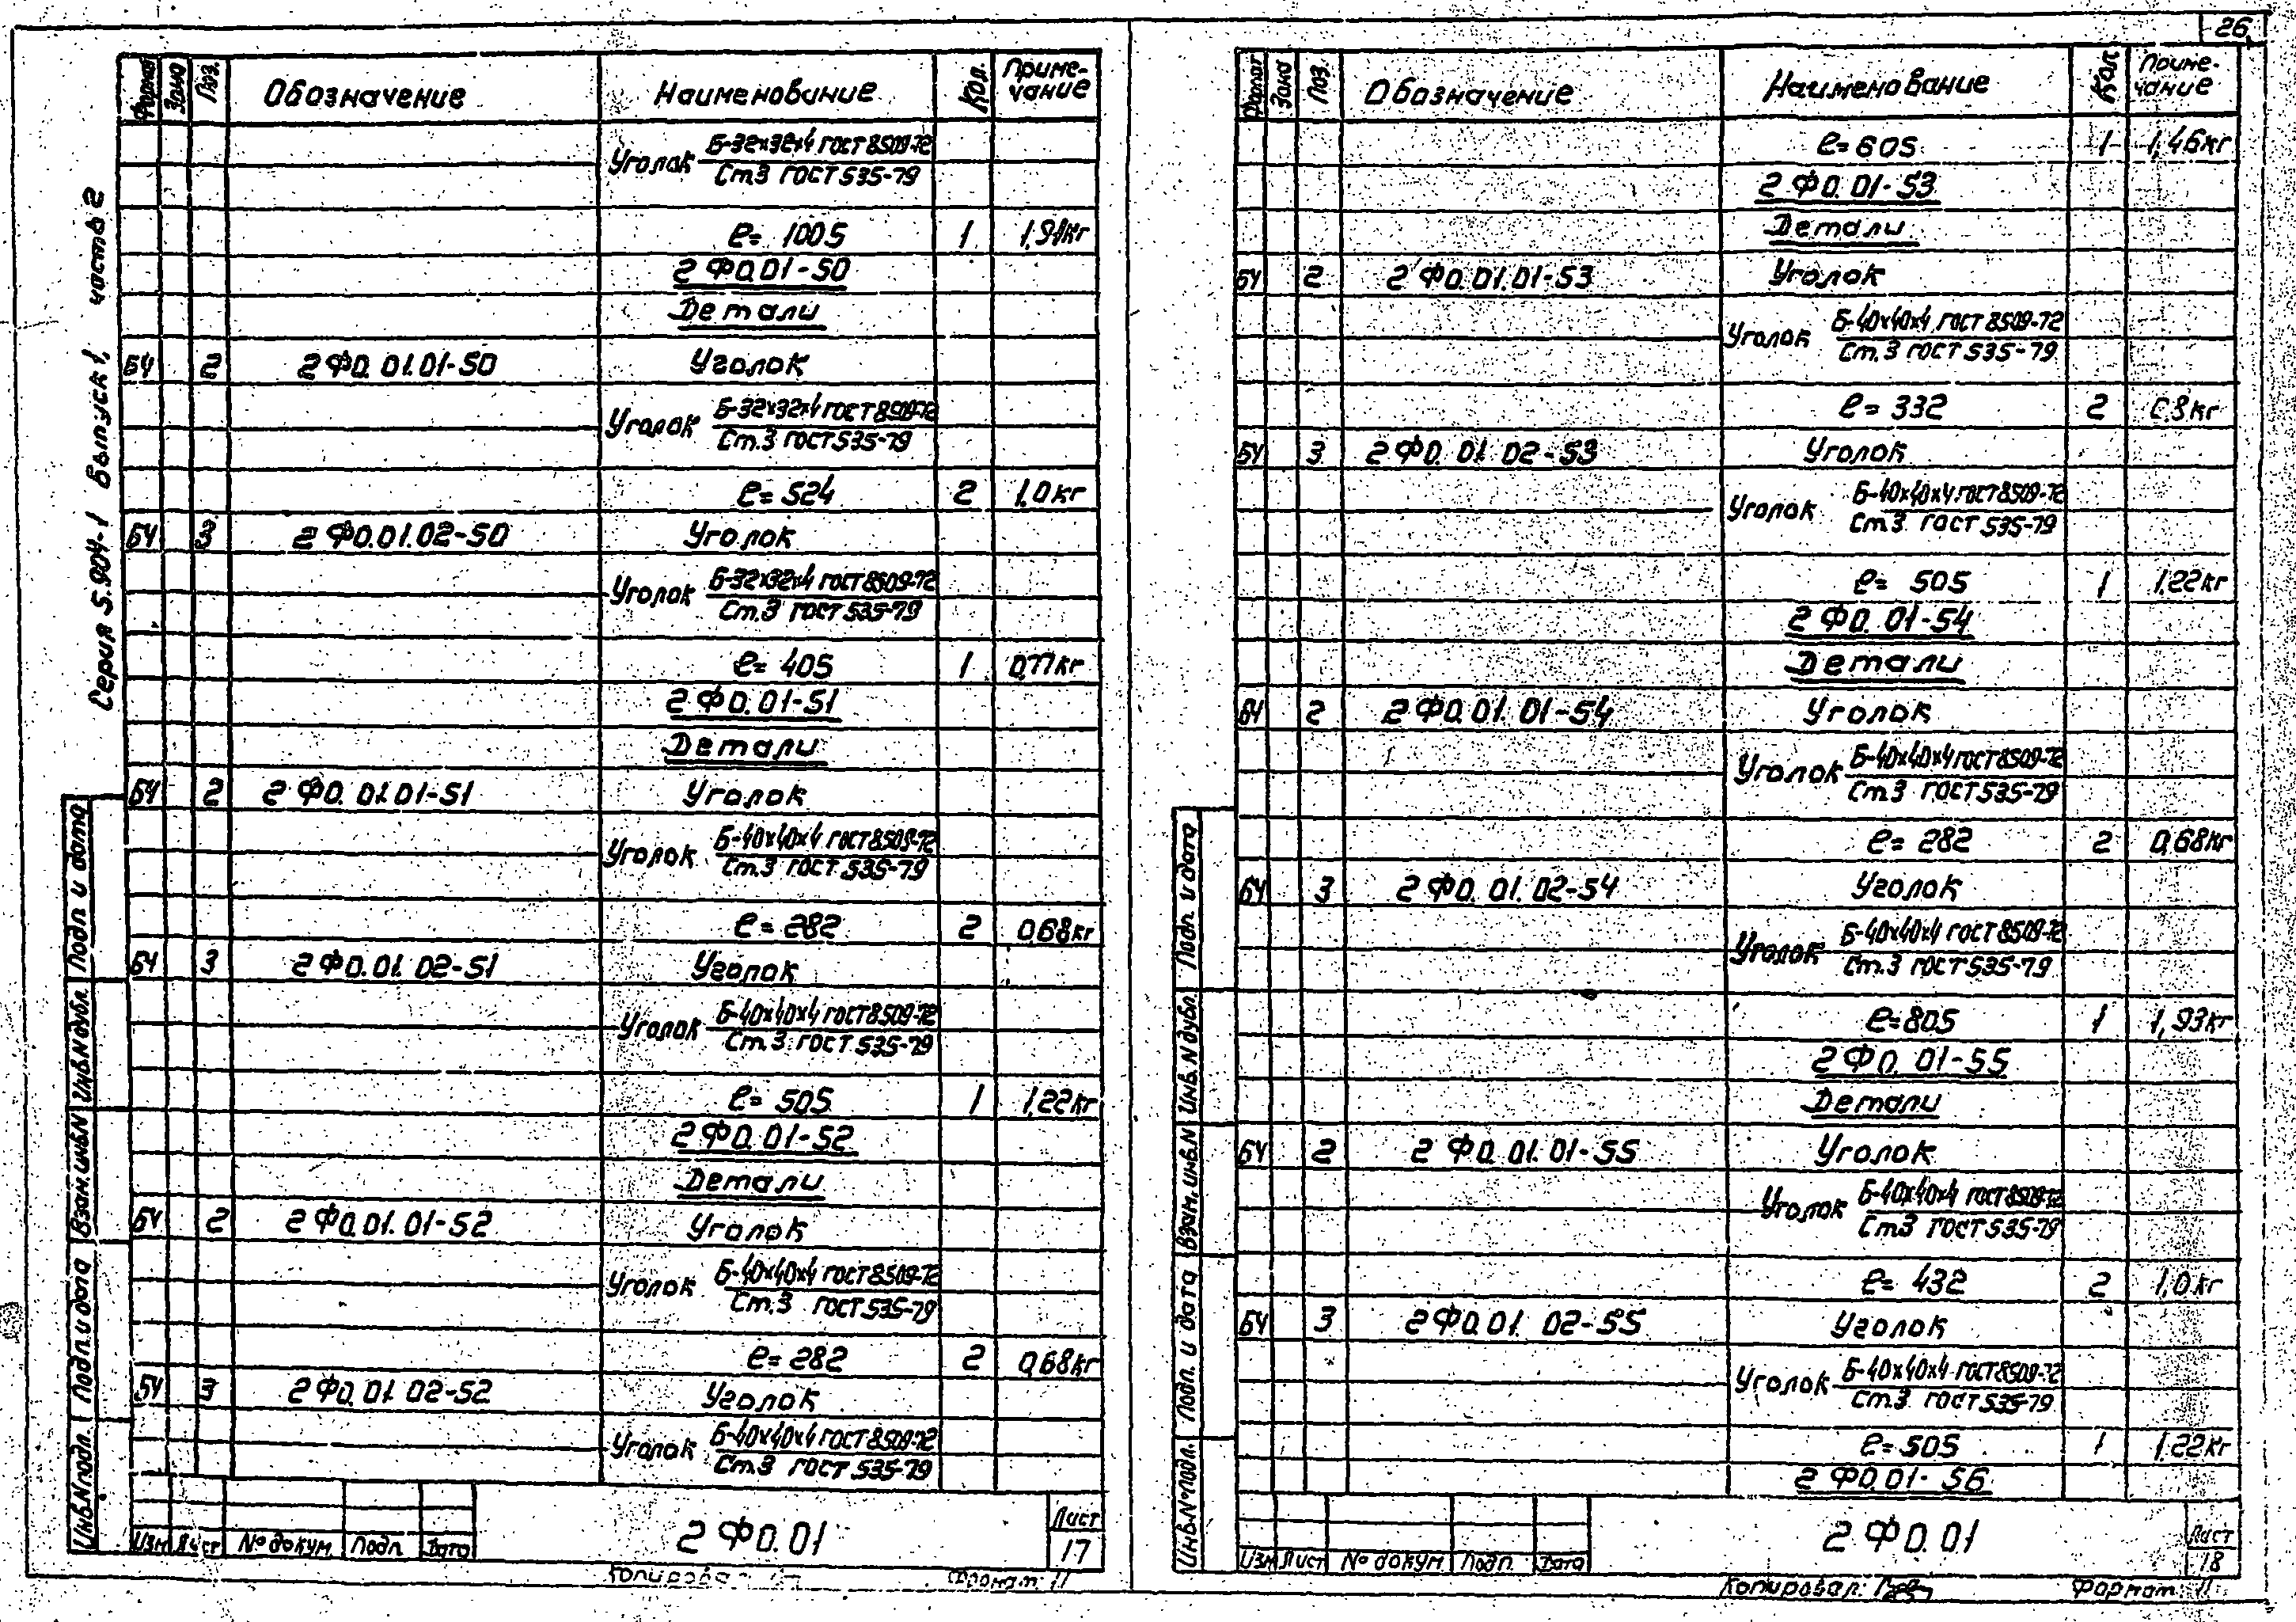 26
Серия 5.904-1 Выпуск 1, часть 2
Формат Зона Поз. Обозначение Наименование Кол. Приме-
чание
Уголок Б-32х32х4 ГОСТ 8509-72
Ст.3 ГОСТ 535-79
ℓ= 1005 1 1,91кг
2 ФО.01-50
Детали
БЧ 2 2 ФО.01.01-50 Уголок
Уголок Б-32х32х4 ГОСТ 8509-72
Ст.3 ГОСТ 535-79
ℓ= 524 2 1,0кг
БЧ 3 2 ФО.01.02-50 Уголок
Уголок Б-32х32х4 ГОСТ 8509-72
Ст.3 ГОСТ 535-79
ℓ= 405 1 0,77кг
2 ФО.01-51
Детали
БЧ 2 2 ФО.01.01-51 Уголок
Уголок Б-40х40х4 ГОСТ 8509-72
Ст.3 ГОСТ 535-79
ℓ= 282 2 0,68кг
БЧ 3 2 ФО.01.02-51 Уголок
Уголок Б-40х40х4 ГОСТ 8509-72
Ст.3 ГОСТ 535-79
ℓ= 505 1 1,22кг
2 ФО.01-52
Детали
БЧ 2 2 ФО.01.01-52 Уголок
Уголок Б-40х40х4 ГОСТ 8509-72
Ст.3 ГОСТ 535-79
ℓ= 282 2 0,68кг
БЧ 3 2 ФО.01.02-52 Уголок
Уголок Б-40х40х4 ГОСТ 8509-72
Ст.3 ГОСТ 535-79
Инв.№подл. Подп. и дата Взам.инв.№ Инв.№дубл. Подп. и дата
Изм Лист № докум. Подп. Дата
2 ФО.01
Лист
17
Копировал Формат 11
Формат Зона Поз. Обозначение Наименование Кол. Приме-
чание
ℓ= 605 1 1,46кг
2 ФО.01-53
Детали
БЧ 2 2 ФО.01.01-53 Уголок
Уголок Б-40х40х4 ГОСТ 8509-72
Ст.3 ГОСТ 535-79
ℓ= 332 2 0,8кг
БЧ 3 2 ФО.01.02-53 Уголок
Уголок Б-40х40х4 ГОСТ 8509-72
Ст.3 ГОСТ 535-79
ℓ= 505 1 1,22кг
2 ФО.01-54
Детали
БЧ 2 2 ФО.01.01-54 Уголок
Уголок Б-40х40х4 ГОСТ 8509-72
Ст.3 ГОСТ 535-79
ℓ= 282 2 0,68кг
БЧ 3 2 ФО.01.02-54 Уголок
Уголок Б-40х40х4 ГОСТ 8509-72
Ст.3 ГОСТ 535-79
ℓ= 805 1 1,93кг
2 ФО.01-55
Детали
БЧ 2 2 ФО.01.01-55 Уголок
Уголок Б-40х40х4 ГОСТ 8509-72
Ст.3 ГОСТ 535-79
ℓ= 432 2 1,0кг
БЧ 3 2 ФО.01.02-55 Уголок
Уголок Б-40х40х4 ГОСТ 8509-72
Ст.3 ГОСТ 535-79
ℓ= 505 1 1,22кг
2 ФО.01-56
Инв.№подл. Подп. и дата Взам.инв.№ Инв.№дубл. Подп. и дата
Изм Лист № докум. Подп. Дата
2 ФО.01
Лист
18
Копировал: Формат 11